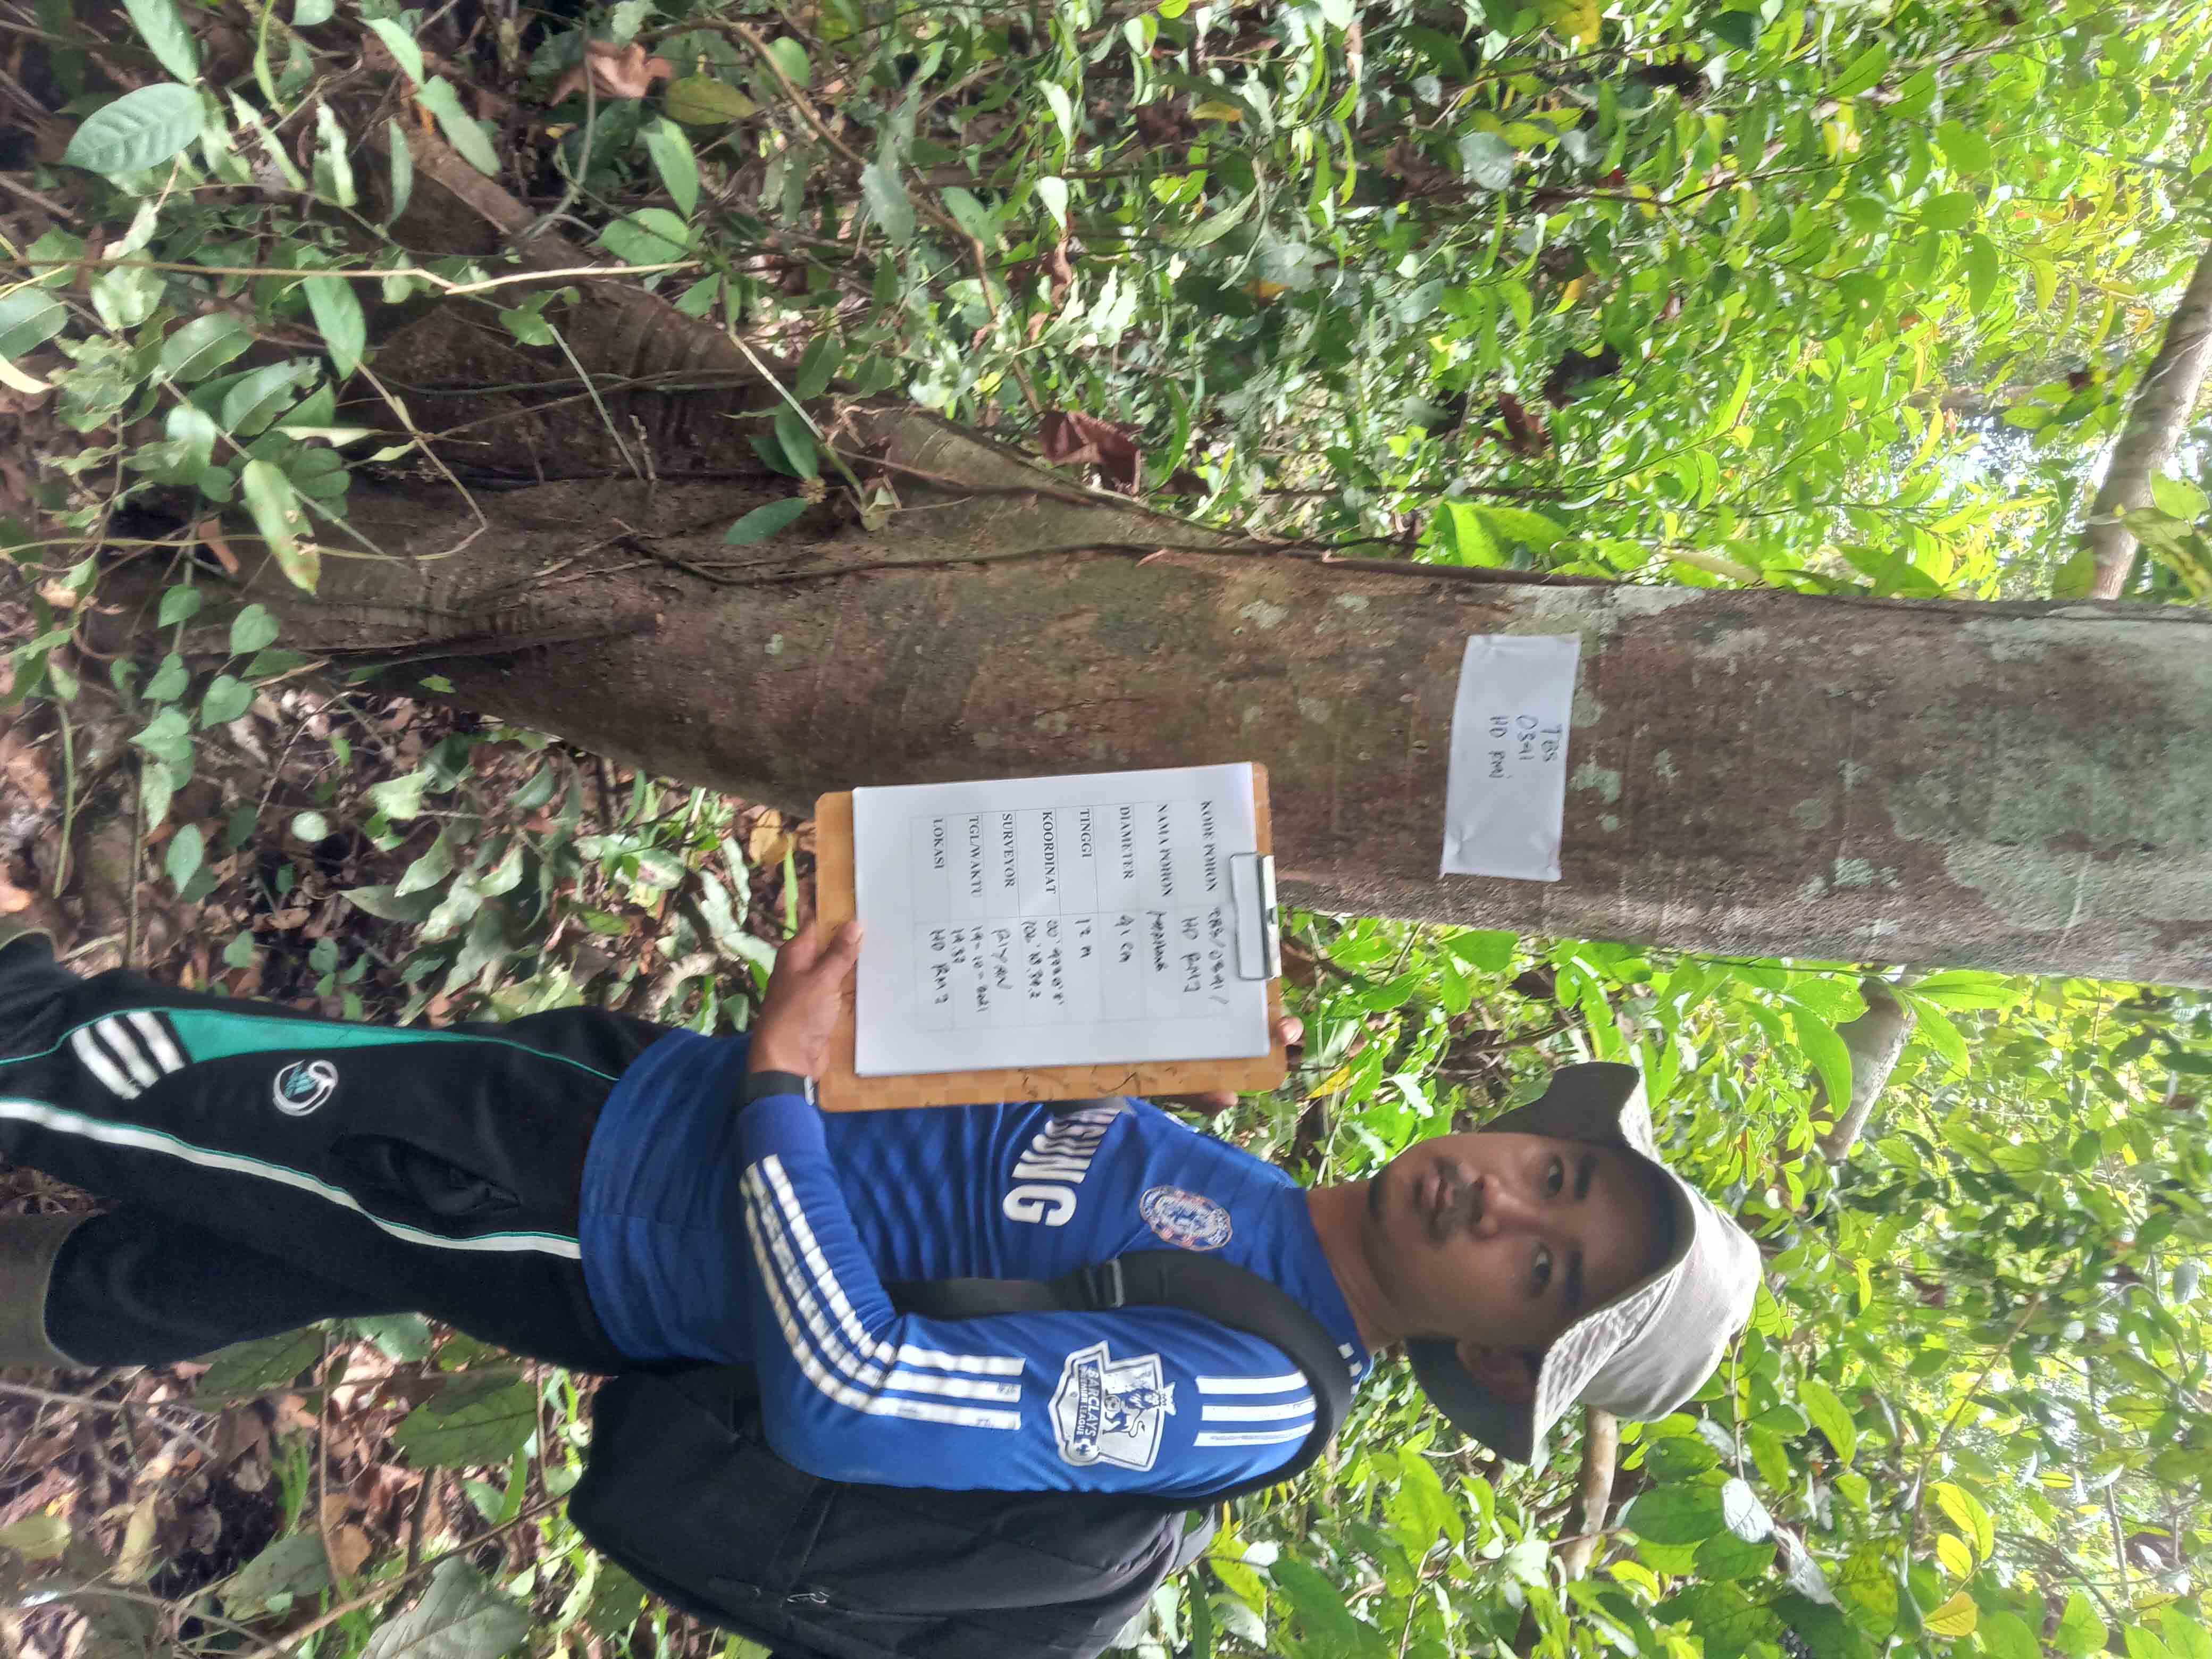 TBS
0391
HD RMI
KODE POHON TBS/0391/
HD RM2
NAMA POHON
DIAMETER 41 cm
TINGGI 12 m
KOORDINAT
SURVEYOR RIYAN
TGL/WAKTU 19-10-2021
LOKASI HD RM 2
SUNG
BARCLAYS
PREMIER LEAGUE